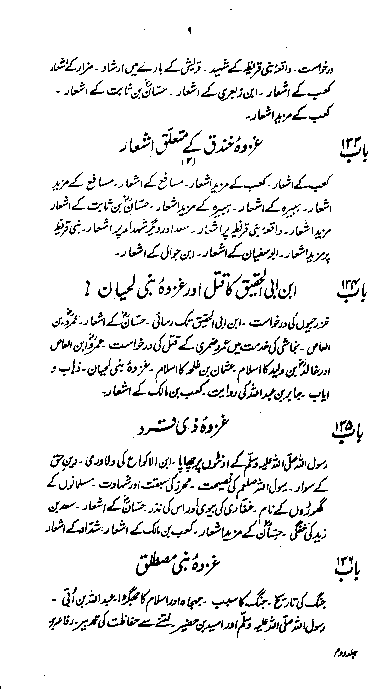 ۹
درخواست۔ واقعۂ بنی قریظہ کے شہید۔ قریش کے بارے میں ارشاد۔ ضرار کے اشعار
کعب کے اشعار۔ ابن زبعری کے اشعار۔ حسّانؓ بن ثابت کے اشعار۔
کعب کے مزید اشعار۔
باب ۱۲۳ غزوۂ خندق کے متعلق اشعار
(۲)
کعب کے اشعار۔ کعب کے مزید اشعار۔ مسافع کے اشعار۔ مسافع کے مزید
اشعار۔ ہبیرہ کے اشعار۔ ہبیرہ کے مزید اشعار۔ حسّانؓ بن ثابت کے اشعار
مزید اشعار۔ واقعۂ بنی قریظہ پر اشعار۔ سعد اور دیگر شہدا پر اشعار۔ بنی قریظہ
پر مزید اشعار۔ ابوسفیان کے اشعار۔ ابن جوال کے اشعار۔
باب ۱۲۴ ابن ابی الحقیق کا قتل اور غزوۂ بنی لحیان
خزرجیوں کی درخواست۔ ابن ابی الحقیق تک رسائی۔ حسّانؓ کے اشعار۔ عمروؓ بن
العاص۔ نجاشی کی خدمت میں عمرو ضمری کے قتل کی درخواست۔ عمروؓ بن العاص
اور خالدؓ بن ولید کا اسلام۔ عثمان بن طلحہ کا اسلام۔ غزوۂ بنی لحیان۔ ذہاب و
ایاب۔ جابر بن عبداللہ کی روایت۔ کعب بن مالک کے اشعار۔
باب ۱۲۵ غزوۂ ذی قرد
رسول اللہ صلی اللہ علیہ وسلم کے اونٹوں پر چھاپا۔ ابن الاکواع کی دلاوری۔ دین حق
کے سوار۔ رسول اللہ صلعم کی نصیحت۔ محرز کی سبقت اور شہادت۔ مسلمانوں کے
گھوڑوں کے نام۔ غفاری کی بیوی اور اس کی نذر۔ حسّانؓ کے اشعار۔ سعد بن
زید کی خفگی۔ حسّانؓ کے مزید اشعار۔ کعب بن مالک کے اشعار۔ شداد کے اشعار
باب ۱۲۶ غزوۂ بنی مصطلق
جنگ کی تاریخ۔ جنگ کا سبب۔ جہجاہ اور اسلام کا جھگڑا۔ عبداللہ بن اُبَی۔
رسول اللہ صلی اللہ علیہ وسلم اور اسید بن حضیر۔ فتنے سے حفاظت کی تدبیر۔
جلد دوم